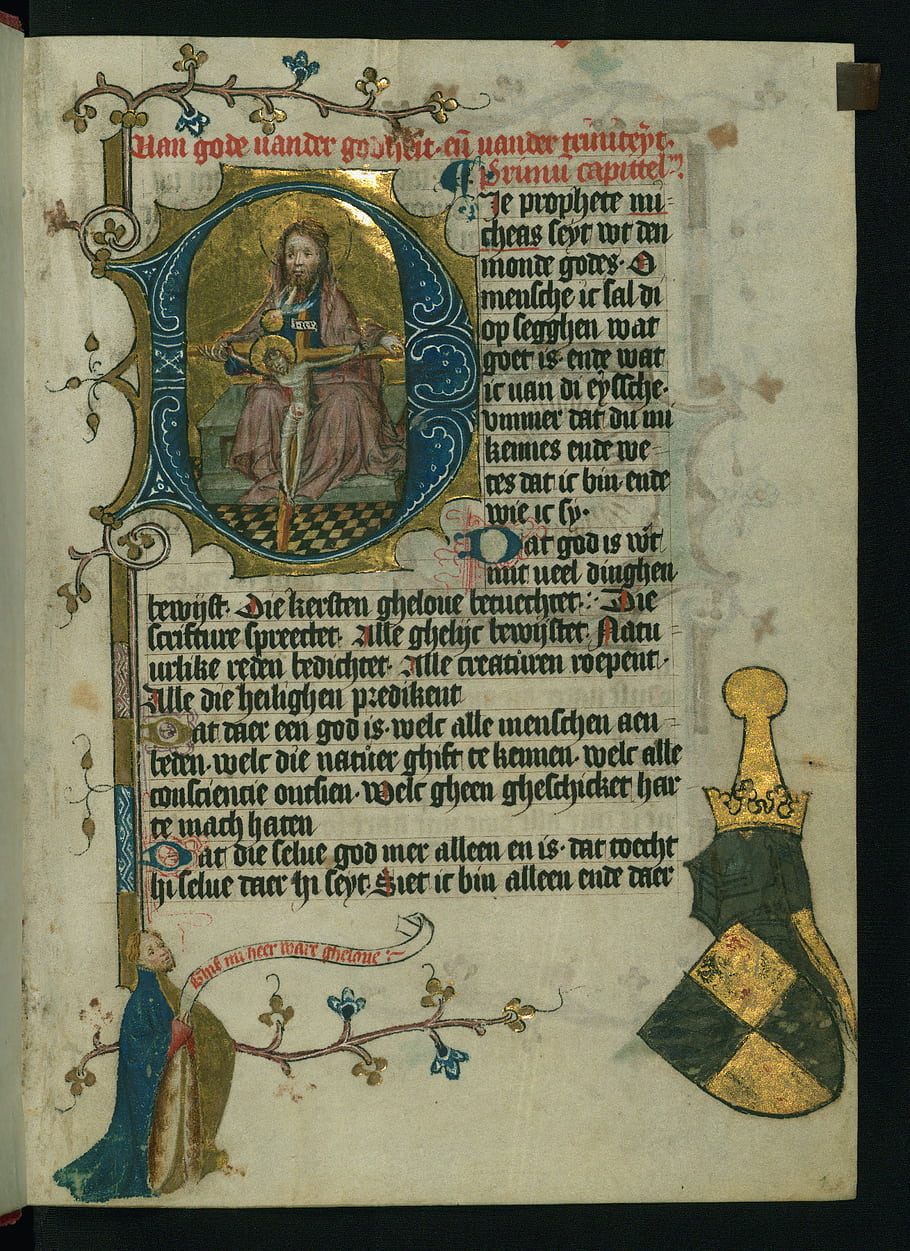 Uan gode uander godheit· eñ uander triniteyt·
Primu capittel
Ie prophete mi=
cheas seyt wt den
monde godes· O
mensche ic sal di
op segghen wat
goet is ende wat
ic uan di eyssche·
ummer dat du mi
kennes ende we=
tes dat ic bin ende
wie ic sy·
Dat god is wt
mit ueel dinghen
bewijst· Die kersten gheloue betuechtet· Die
scrifture spreectet· Alle ghelijc bewijstet Natu=
urlike reden bedichtet· Alle creaturen roepent·
Alle die heilighen predikent
Dat daer een god is· welc alle menschen aen=
beden· welc die natuer ghift te kennen· welc alle
consciencie ontsien· welc gheen gheschicket har
te mach haten
Dat die selue god mer alleen en is· dat toecht
hi selue daer hi seyt· Siet ic bin alleen ende daer
Ghif mi heer ware gheloue